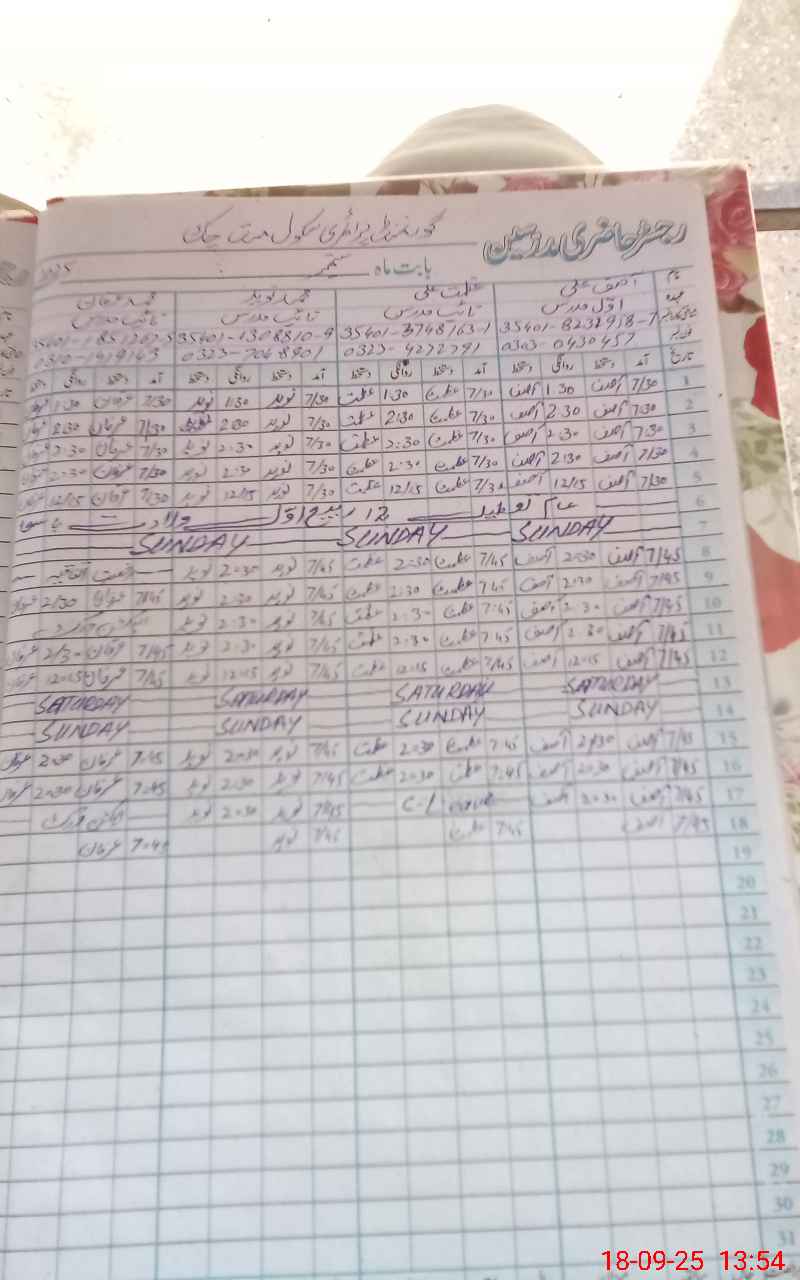 رجسٹر حاضری مدرسین گورنمنٹ پرائمری سکول چک
بابت ماہ ستمبر
نام آصف علی عظمت علی محمد نوید محمد عرفان
عہدہ اوّل مدرس نائب مدرس نائب مدرس نائب مدرس
35401-8232958-7 35401-3748763-1 35401-4308810-9
0303-0430457 0323-4272791 0323-7048901 0310-1419143
تاریخ آمد دستخط روانگی دستخط آمد دستخط روانگی دستخط آمد دستخط روانگی دستخط آمد دستخط روانگی دستخط
1 7/30 آصف 1:30 آصف 7/30 عظمت 1:30 عظمت 7/30 نوید 1:30 نوید 7/30 عرفان 1:30
2 7:30 آصف 2:30 آصف 7/30 عظمت 2:30 عظمت 7/30 نوید 2:30 نوید 7/30 عرفان 2:30
3 7:30 آصف 2:30 آصف 7/30 عظمت 2:30 عظمت 7/30 نوید 2:30 نوید 7/30 عرفان 2:30
4 7/30 آصف 2:30 آصف 7/30 عظمت 2:30 عظمت 7/30 نوید 2:30 نوید 7/30 عرفان 2:30
5 7/30 آصف 12/15 آصف 7/30 عظمت 12/15 عظمت 7/30 نوید 12/15 نوید 7/30 عرفان 12/15
6 عام تعطیل 12 ربیع الاوّل
7 SUNDAY SUNDAY SUNDAY
8 7/45 آصف 2:30 آصف 7/45 عظمت 2:30 عظمت 7/45 نوید 2:30 نوید
9 7/45 آصف 2:30 آصف 7:45 عظمت 2:30 عظمت 7/45 نوید 2:30 نوید 7/45 عرفان 2/30
10 7/45 آصف 2:30 آصف 7:45 عظمت 2:30 عظمت 7/45 نوید 2:30 نوید
11 7/45 آصف 2:30 آصف 7:45 عظمت 2:30 عظمت 7/45 نوید 2:30 نوید 7/45 عرفان 2/30
12 7/45 آصف 12:15 آصف 7/45 عظمت 12:15 عظمت 7/45 نوید 12:15 نوید 7/45 عرفان 12:15
13 SATURDAY SATURDAY SATURDAY SATURDAY
14 SUNDAY SUNDAY SUNDAY SUNDAY
15 7/45 آصف 2/30 آصف 7:45 عظمت 2:30 عظمت 7/45 نوید 2:30 نوید 7:45 عرفان 2:30 عرفان
16 7/45 آصف 2:30 آصف 7:45 عظمت 2:30 عظمت 7/45 نوید 2:30 نوید 7:45 عرفان 2:30 عرفان
17 7/45 آصف 2:30 آصف C-L 7/45 نوید 2:30 نوید
18 7/45 آصف 7:45 عظمت 7/45 نوید 7:45 عرفان
19
20
21
22
23
24
25
26
27
28
29
30
31
18-09-25 13:54